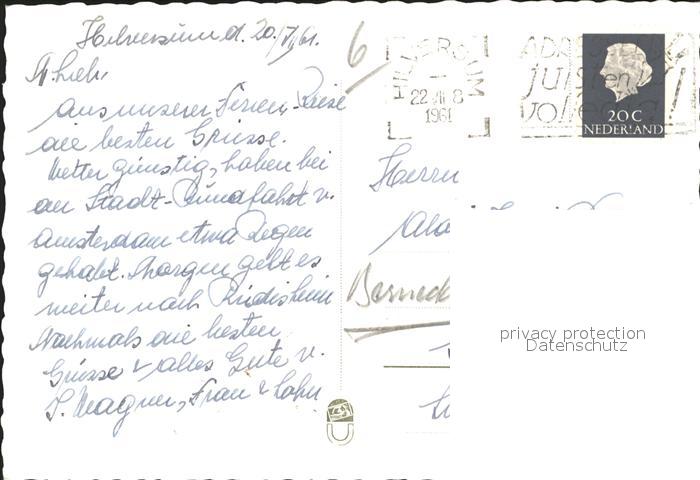 Hilversum d. 20./VII 61.
6
HILVERSUM
22.VII 8
1961
ADRES
juist en
volledig!
20 C
NEDERLAND
aus unserer Ferien-Reise
die besten Grüsse.
Wetter günstig, haben bei
der Stadt-Rundfahrt v.
Amsterdam etwas Regen
gehabt. Morgen geht es
weiter nach
Nochmals die besten
Grüsse & alles Gute v.
Wagner, Frau & Sohn
Herrn
Berneck
privacy protection
Datenschutz